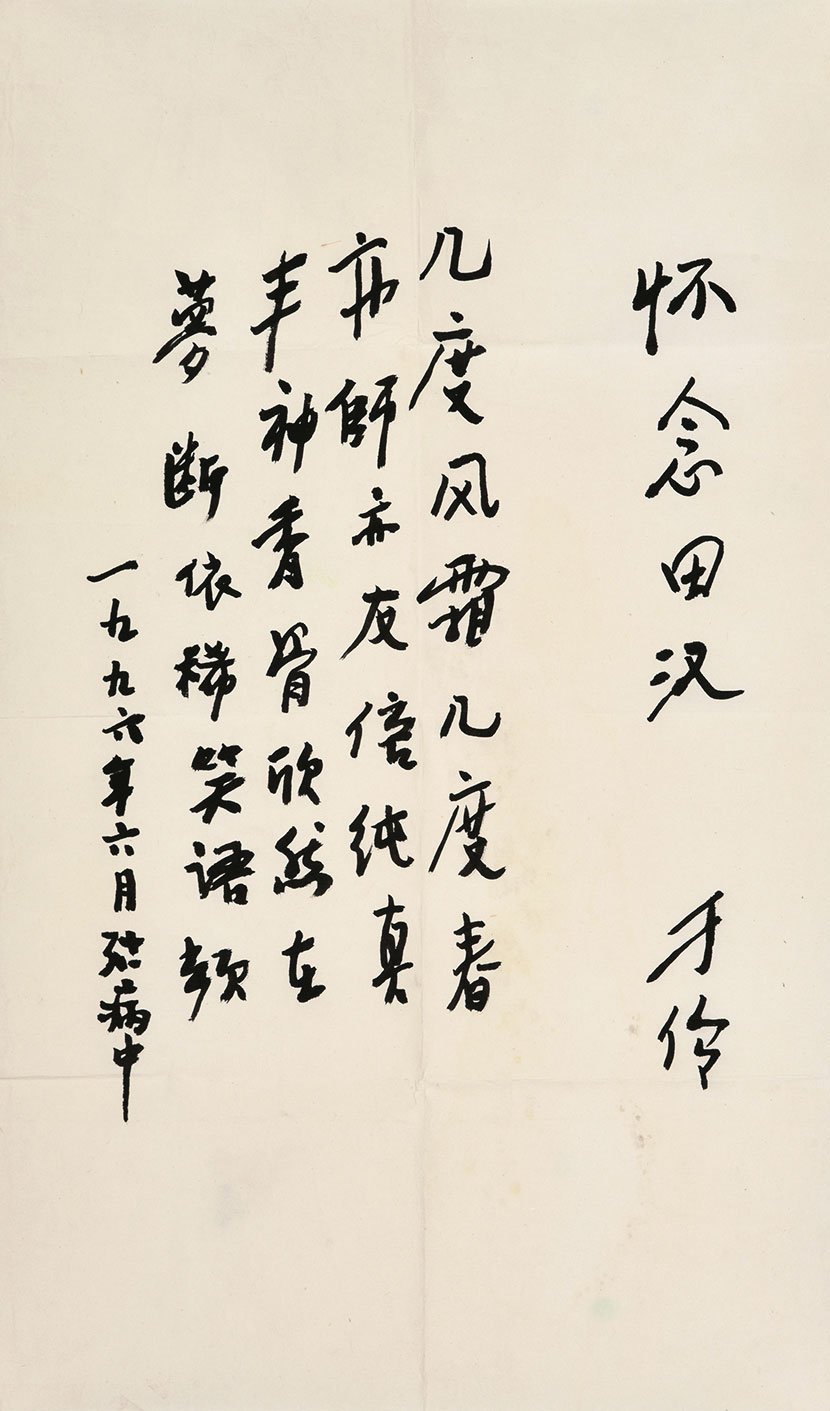 怀念田汉 于伶
几度风霜几度春
亦師亦友倍纯真
丰神骨欣然在
夢断依稀笑语频
一九九六年六月病中